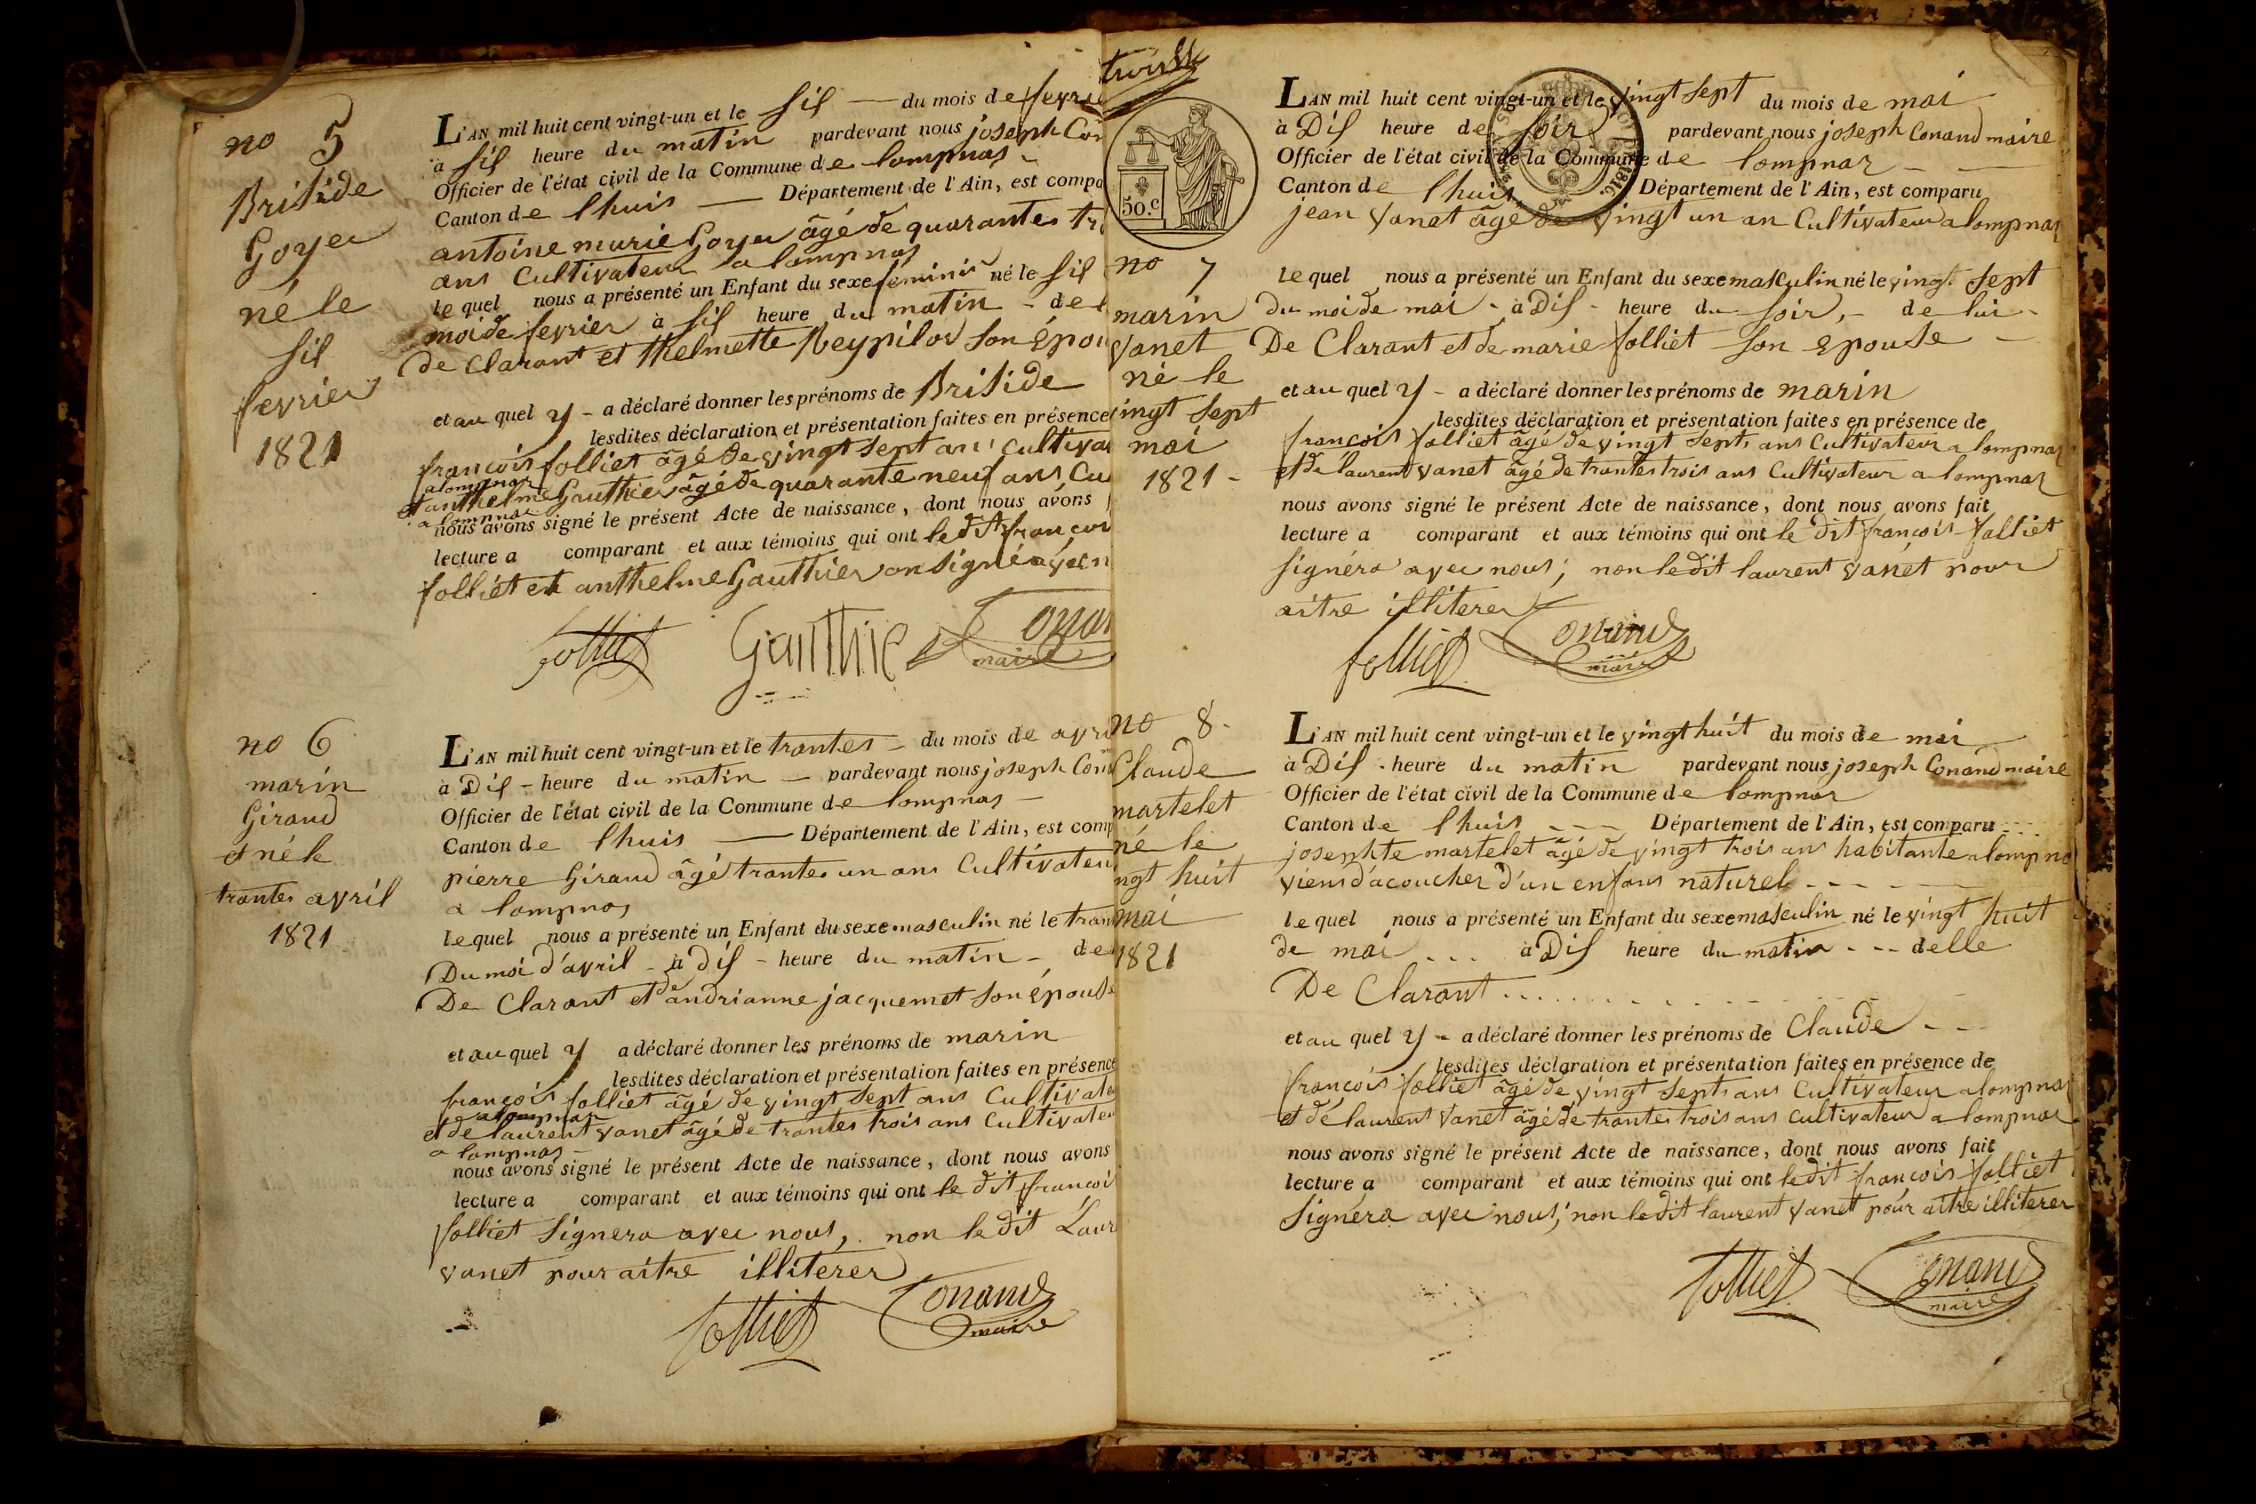 no 5
Briside
Goyer
né le
sil
fevrier
1821
L'AN mil huit cent vingt-un et le sil du mois de fevrie
à sil heure du matin pardevant nous joseph Con
Officier de l'état civil de la Commune de lompnas
Canton de lhuis Département de l'Ain, est compa
antoine marie Goyer âgé de quarantes tr
ans Cultivateur a lompnas
le quel nous a présenté un Enfant du sexe feminis né le sil
moi de fevrier à sil heure du matin - de
de Clarant et thelmette Reypilos son Épou
et au quel y - a déclaré donner les prénoms de Briside
lesdites déclaration et présentation faites en présence
francois folliet âgé de vingt sept an cultiva
a lompnas
et anthelme Gauthier âgé de quarante neuf ans Cu
a lompnas
nous avons signé le présent Acte de naissance, dont nous avons
lecture a comparant et aux témoins qui ont le dit francoi
folliet et anthelme Gauthier on signé avec n
folliet Gauthie Conan
maire
no 6
marin
Giraud
et né le
trantes avril
1821
L'AN mil huit cent vingt-un et le trantes du mois de avri
à Dis - heure du matin pardevant nous joseph Con
Officier de l'état civil de la Commune de lompnas
Canton de lhuis Département de l'Ain, est comp
pierre Giraud âgé trantes un ans Cultivateu
a lompnas
le quel nous a présenté un Enfant du sexe masculin né le tran
Du moi d'avril à dis - heure du matin - de
De Clarant et de andrianne jacquemet son épouse
et au quel y a déclaré donner les prénoms de marin
lesdites déclaration et présentation faites en présence
françois folliet âgé de vingt sept ans Cultivate
a lompnas
et de laurent vanet âgé de trantes trois ans Cultivateu
a lompnas
nous avons signé le présent Acte de naissance, dont nous avons
lecture a comparant et aux témoins qui ont le dit francoi
folliet signera avec nous, non le dit Laur
vanet pour aitre illiterer
folliet Conand
maire
50.c
no 7
marin
vanet
né le
ingt sept
mai
1821 -
L'AN mil huit cent vingt-un et le vingt sept du mois de mai
à Dis heure de soir pardevant nous joseph Conand maire
Officier de l'état civil de la Commune de lompnas
Canton de lhuis Département de l'Ain, est comparu
jean vanet âgé de vingt un an Cultivateur a lompnas
le quel nous a présenté un Enfant du sexe masculin né le vingt sept
du moi de mai - à Dis - heure du soir, - de lui -
De Clarant et de marie folliet son epouse
et au quel y - a déclaré donner les prénoms de marin
lesdites déclaration et présentation faites en présence de
françois folliet âgé de vingt sept ans Cultivateur a lompnas
et de laurent vanet âgé de trantes trois ans Cultivateur a lompnas
nous avons signé le présent Acte de naissance, dont nous avons fait
lecture a comparant et aux témoins qui ont le dit françois folliet
signéra avec nous; non le dit laurent vanet pour
aitre illiterer
folliet Conand
maire
no 8 -
Claude
martelet
né le
ngt huit
mai
1821
L'AN mil huit cent vingt-un et le vingt huit du mois de mai
à Dis - heure du matin pardevant nous joseph Conand maire
Officier de l'état civil de la Commune de lompnas
Canton de lhuis Département de l'Ain, est comparu
josephte martelet âgé de vingt trois ans habitante a lompna
viens d'acoucher d'un enfans naturel
le quel nous a présenté un Enfant du sexe masculin né le vingt huit
de mai à Dis heure du matin - - - delle
De Clarant
et au quel y - a déclaré donner les prénoms de Claude
lesdites déclaration et présentation faites en présence de
françois folliet âgé de vingt sept ans Cultivateur a lompnas
et de laurent vanet âgé de trantes trois ans Cultivateur a lompnas
nous avons signé le présent Acte de naissance, dont nous avons fait
lecture a comparant et aux témoins qui ont le dit françois folliet
signéra avec nous; non le dit laurent vanet pour aitre illiterer
folliet Conand
maire